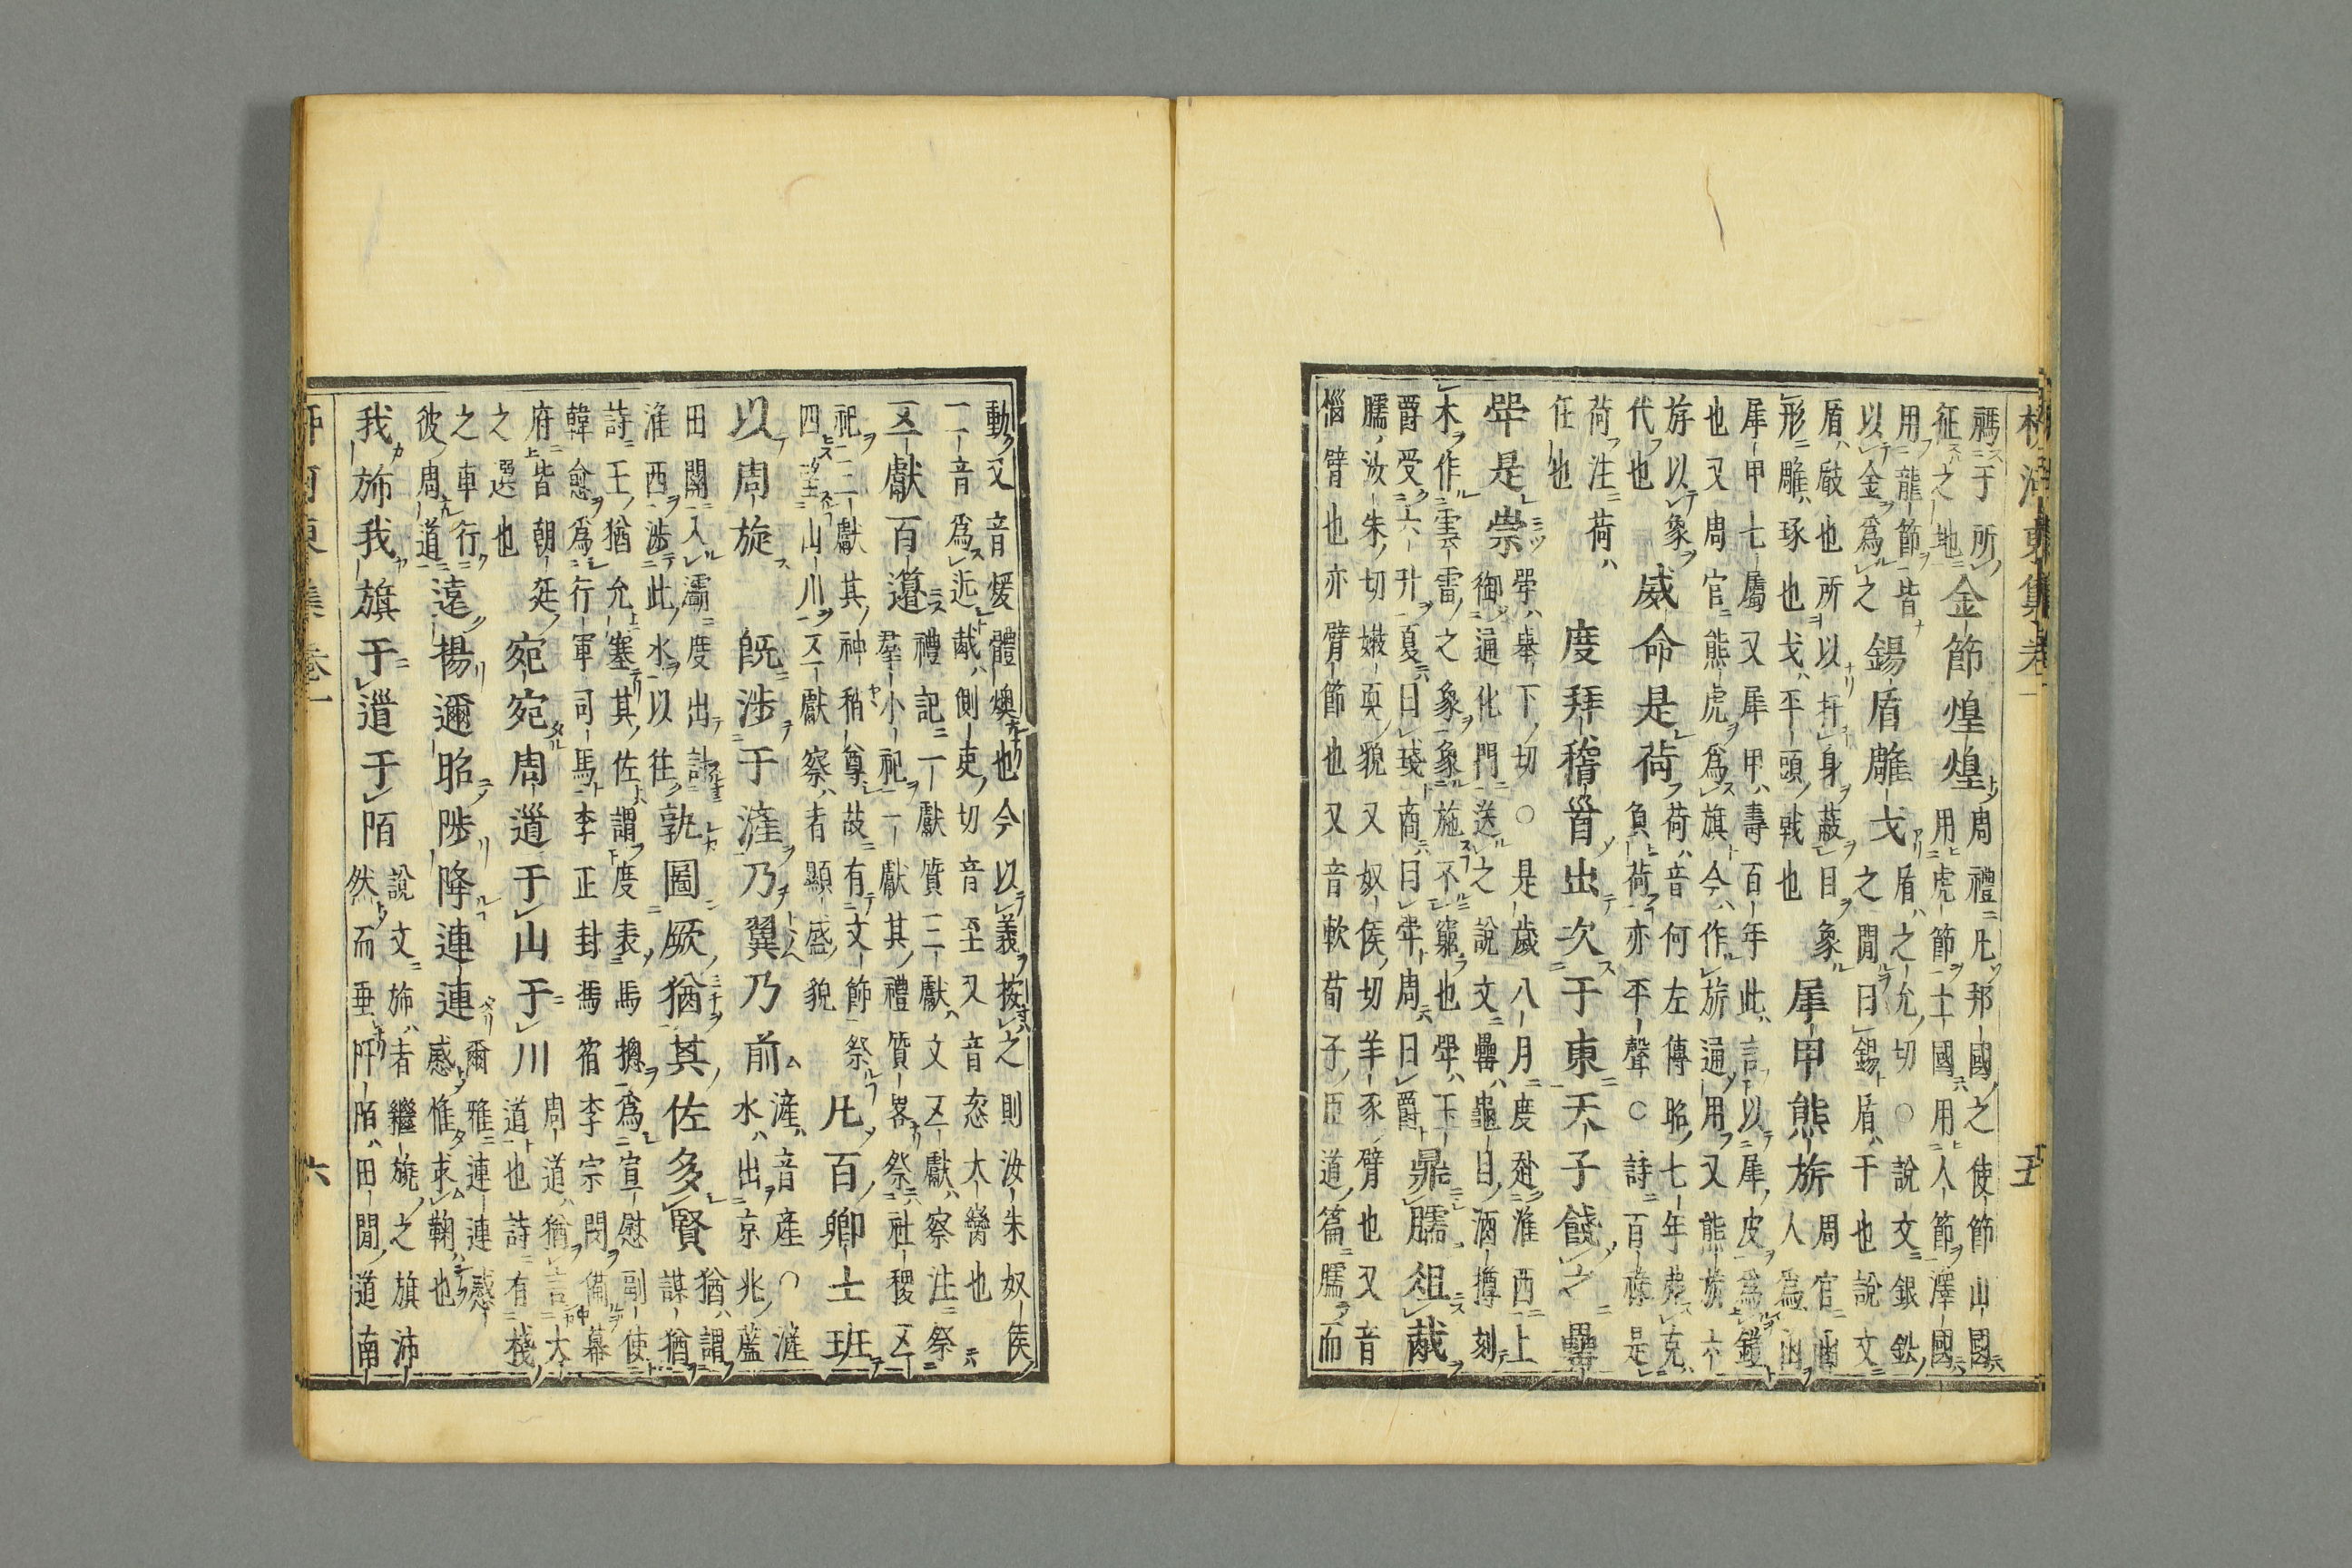 柳河東集卷一 五
禡于所
征之地
金節煌煌
周禮凡邦國之使節山國
用虎節土國用人節澤國
用龍節皆
以金爲之
錫盾雕戈
盾之允切○說文銀鉛
之閒曰錫盾干也說文
盾瞂也所以扞身蔽目象
形雕琢也戈平頭戟也
犀甲熊旂
周官函
人爲函
犀甲七屬又犀甲壽百年此言以犀皮爲鎧
也又周官熊虎爲旗今作旂通用又熊旂六
斿以象
代也
威命是荷
荷音何左傳昭七年弗克
負荷亦平聲○詩百祿是
荷注荷
任也
度拜稽首出次于東天子餞之罍
斝是崇
斝舉下切○是歲八月度赴淮西上
御通化門送之說文罍龜目酒樽刻
木作雲雷之象象施不窮也斝玉
爵受六升夏曰琖商曰斝周曰爵
鼎臑俎胾
臑汝朱切嫩耎貌又奴侯切羊豕臂也又音
惱臂也亦臂節也又音軟荀子臣道篇臑而
動又音煖體燠也今以義按之則汝朱奴侯
二音爲近胾側吏切音至又音恣大臠也
五獻百籩
禮記一獻質三獻文五獻察注祭
羣小祀一獻其禮質畧祭社稷五
祀三獻其神稍尊故有文飾祭
四望山川五獻察者顯盛貌
凡百卿士班
以周旋 旣涉于滻乃翼乃前
滻音產○滻
水出京兆藍
田關入灞度出討
淮西涉此水以往
孰圖厥猶其佐多賢
猶謂
謀猶
詩王猶允塞其佐謂度表馬摠爲宣慰副使
韓愈爲行軍司馬李正封馮宿李宗閔備幕
府皆朝廷
之選也
宛宛周道于山于川
周道猶言大
道也詩有棧
之車行
彼周道
遠揚邇昭陟降連連
爾雅連連慼
慼惟求鞫也
我旆我旗于道于陌
說文旆者繼旐之旗沛
然而垂阡陌田閒道南
柳河東集卷一 六